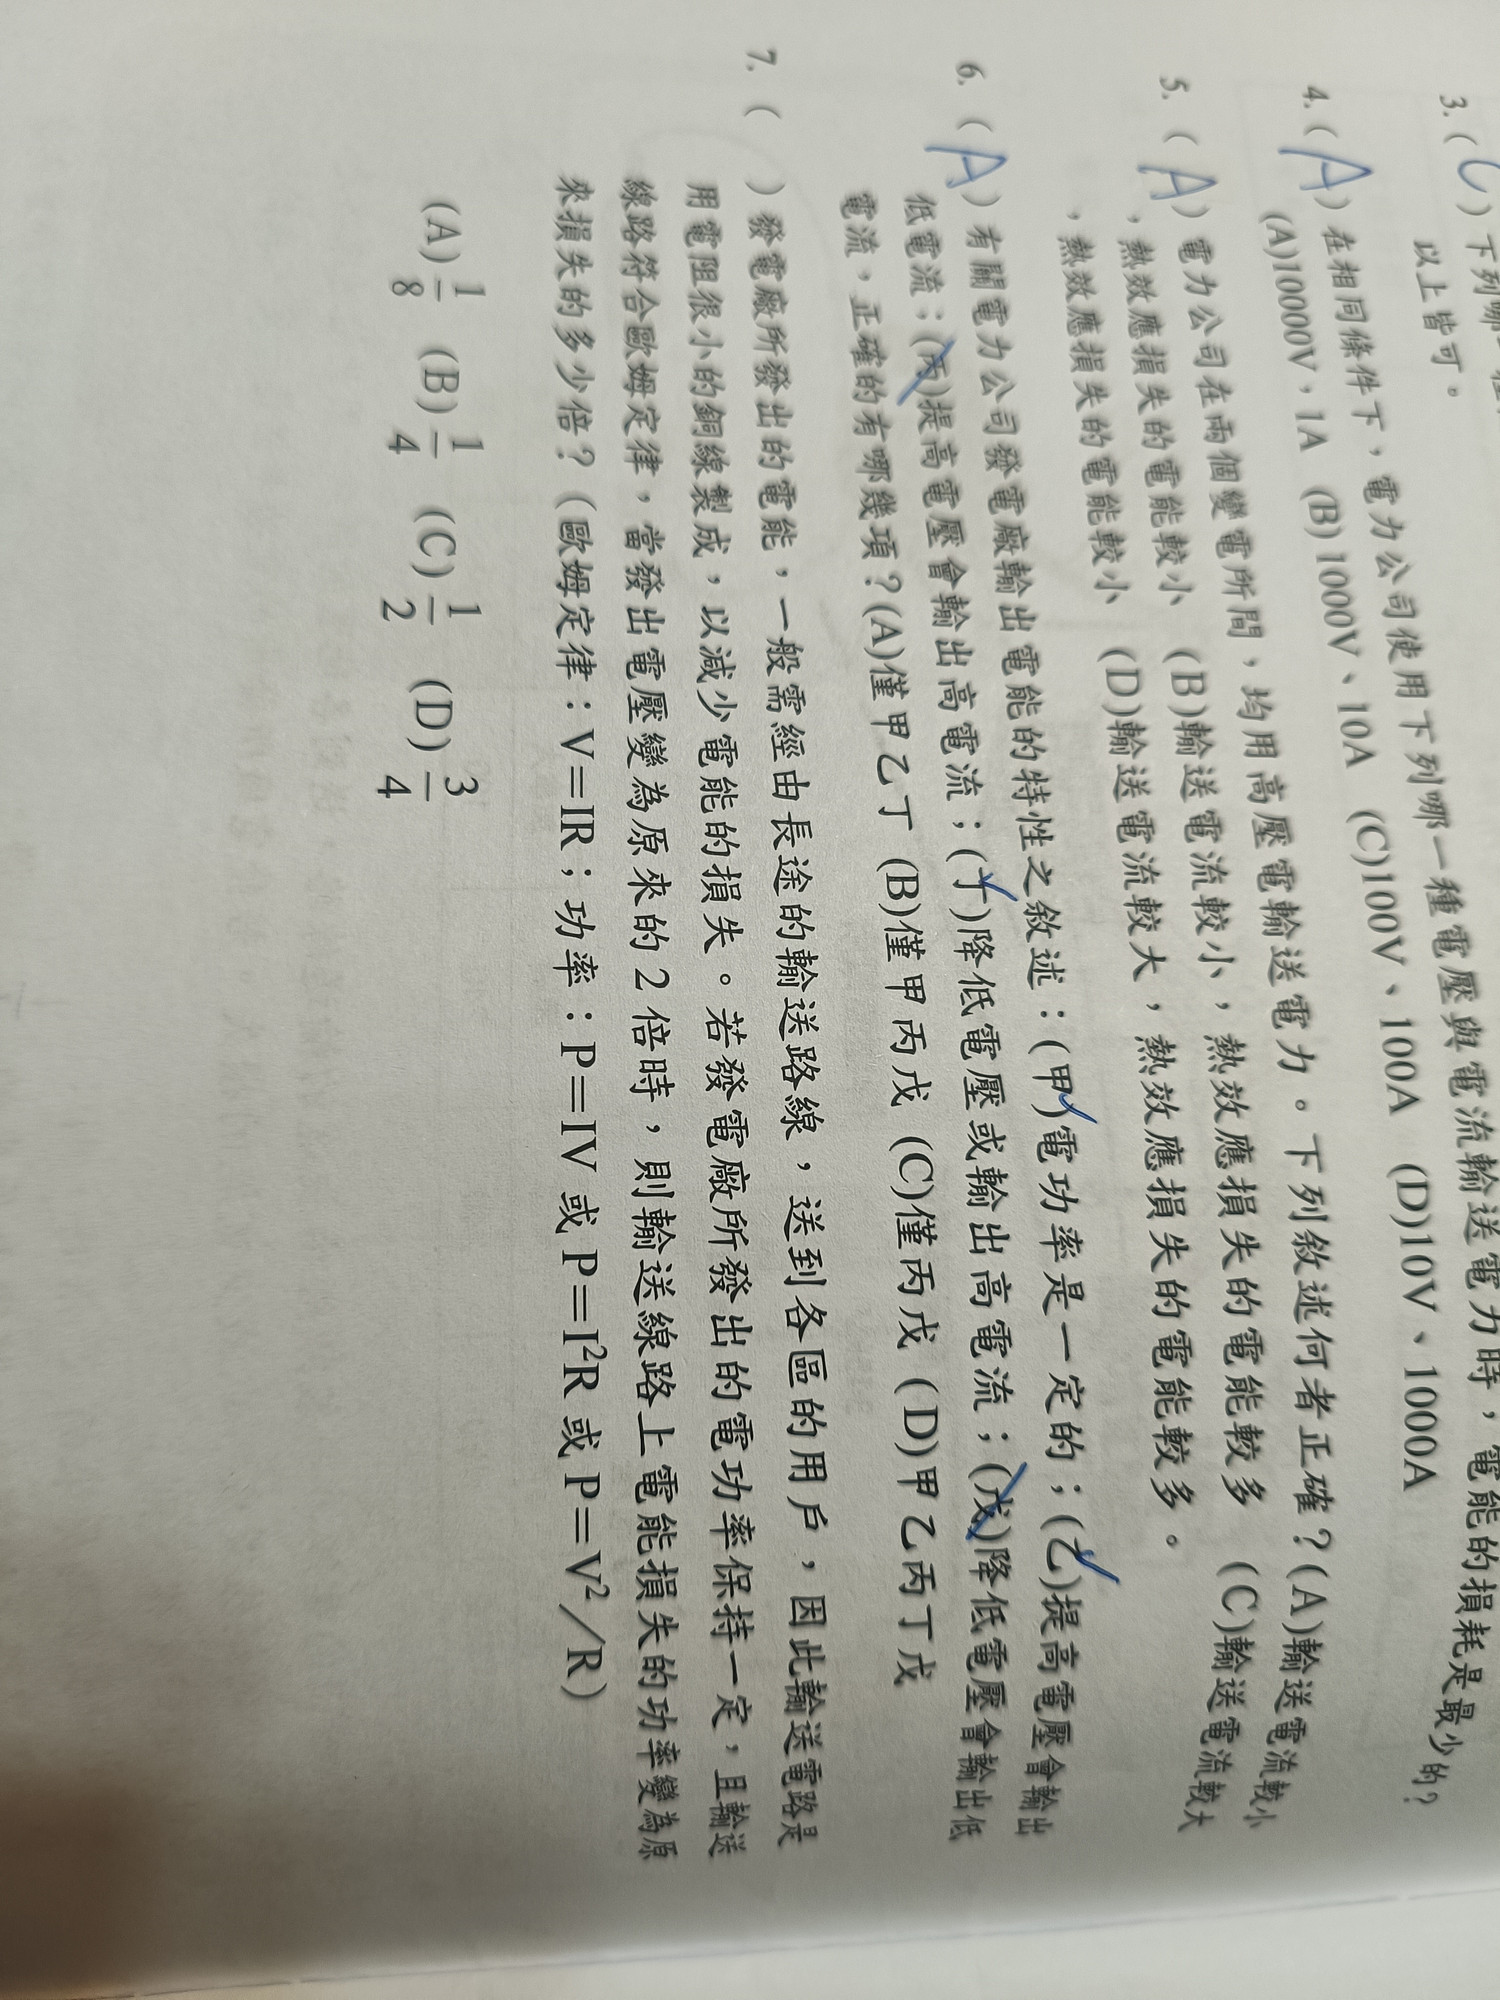 3. ( C ) 下列哪一種
電壓與電流輸送電力時，電能的損耗是最少的？
以上皆可。
4. ( A ) 在相同條件下，電力公司使用下列哪一種電壓與電流輸送電力時，電能的損耗是最少的？
(A)10000V，1A (B) 1000V、10A (C)100V、100A (D)10V、1000A
5. ( A ) 電力公司在兩個變電所間，均用高壓電輸送電力。下列敘述何者正確？(A)輸送電流較小
，熱效應損失的電能較小 (B)輸送電流較小，熱效應損失的電能較多 (C)輸送電流較大
，熱效應損失的電能較小 (D)輸送電流較大，熱效應損失的電能較多。
6. ( A ) 有關電力公司發電廠輸出電能的特性之敘述：(甲)電功率是一定的；(乙)提高電壓會輸出
低電流；(丙)提高電壓會輸出高電流；(丁)降低電壓或輸出高電流；(戊)降低電壓會輸出低
電流，正確的有哪幾項？(A)僅甲乙丁 (B)僅甲丙戊 (C)僅丙戊 (D)甲乙丙丁戊
7. ( ) 發電廠所發出的電能，一般需經由長途的輸送路線，送到各區的用戶，因此輸送電路是
用電阻很小的銅線製成，以減少電能的損失。若發電廠所發出的電功率保持一定，且輸送
線路符合歐姆定律，當發出電壓變為原來的2倍時，則輸送線路上電能損失的功率變為原
來損失的多少倍？（歐姆定律：V＝IR；功率：P＝IV 或 P＝I²R 或 P＝V²／R）
(A) 1/8 (B) 1/4 (C) 1/2 (D) 3/4